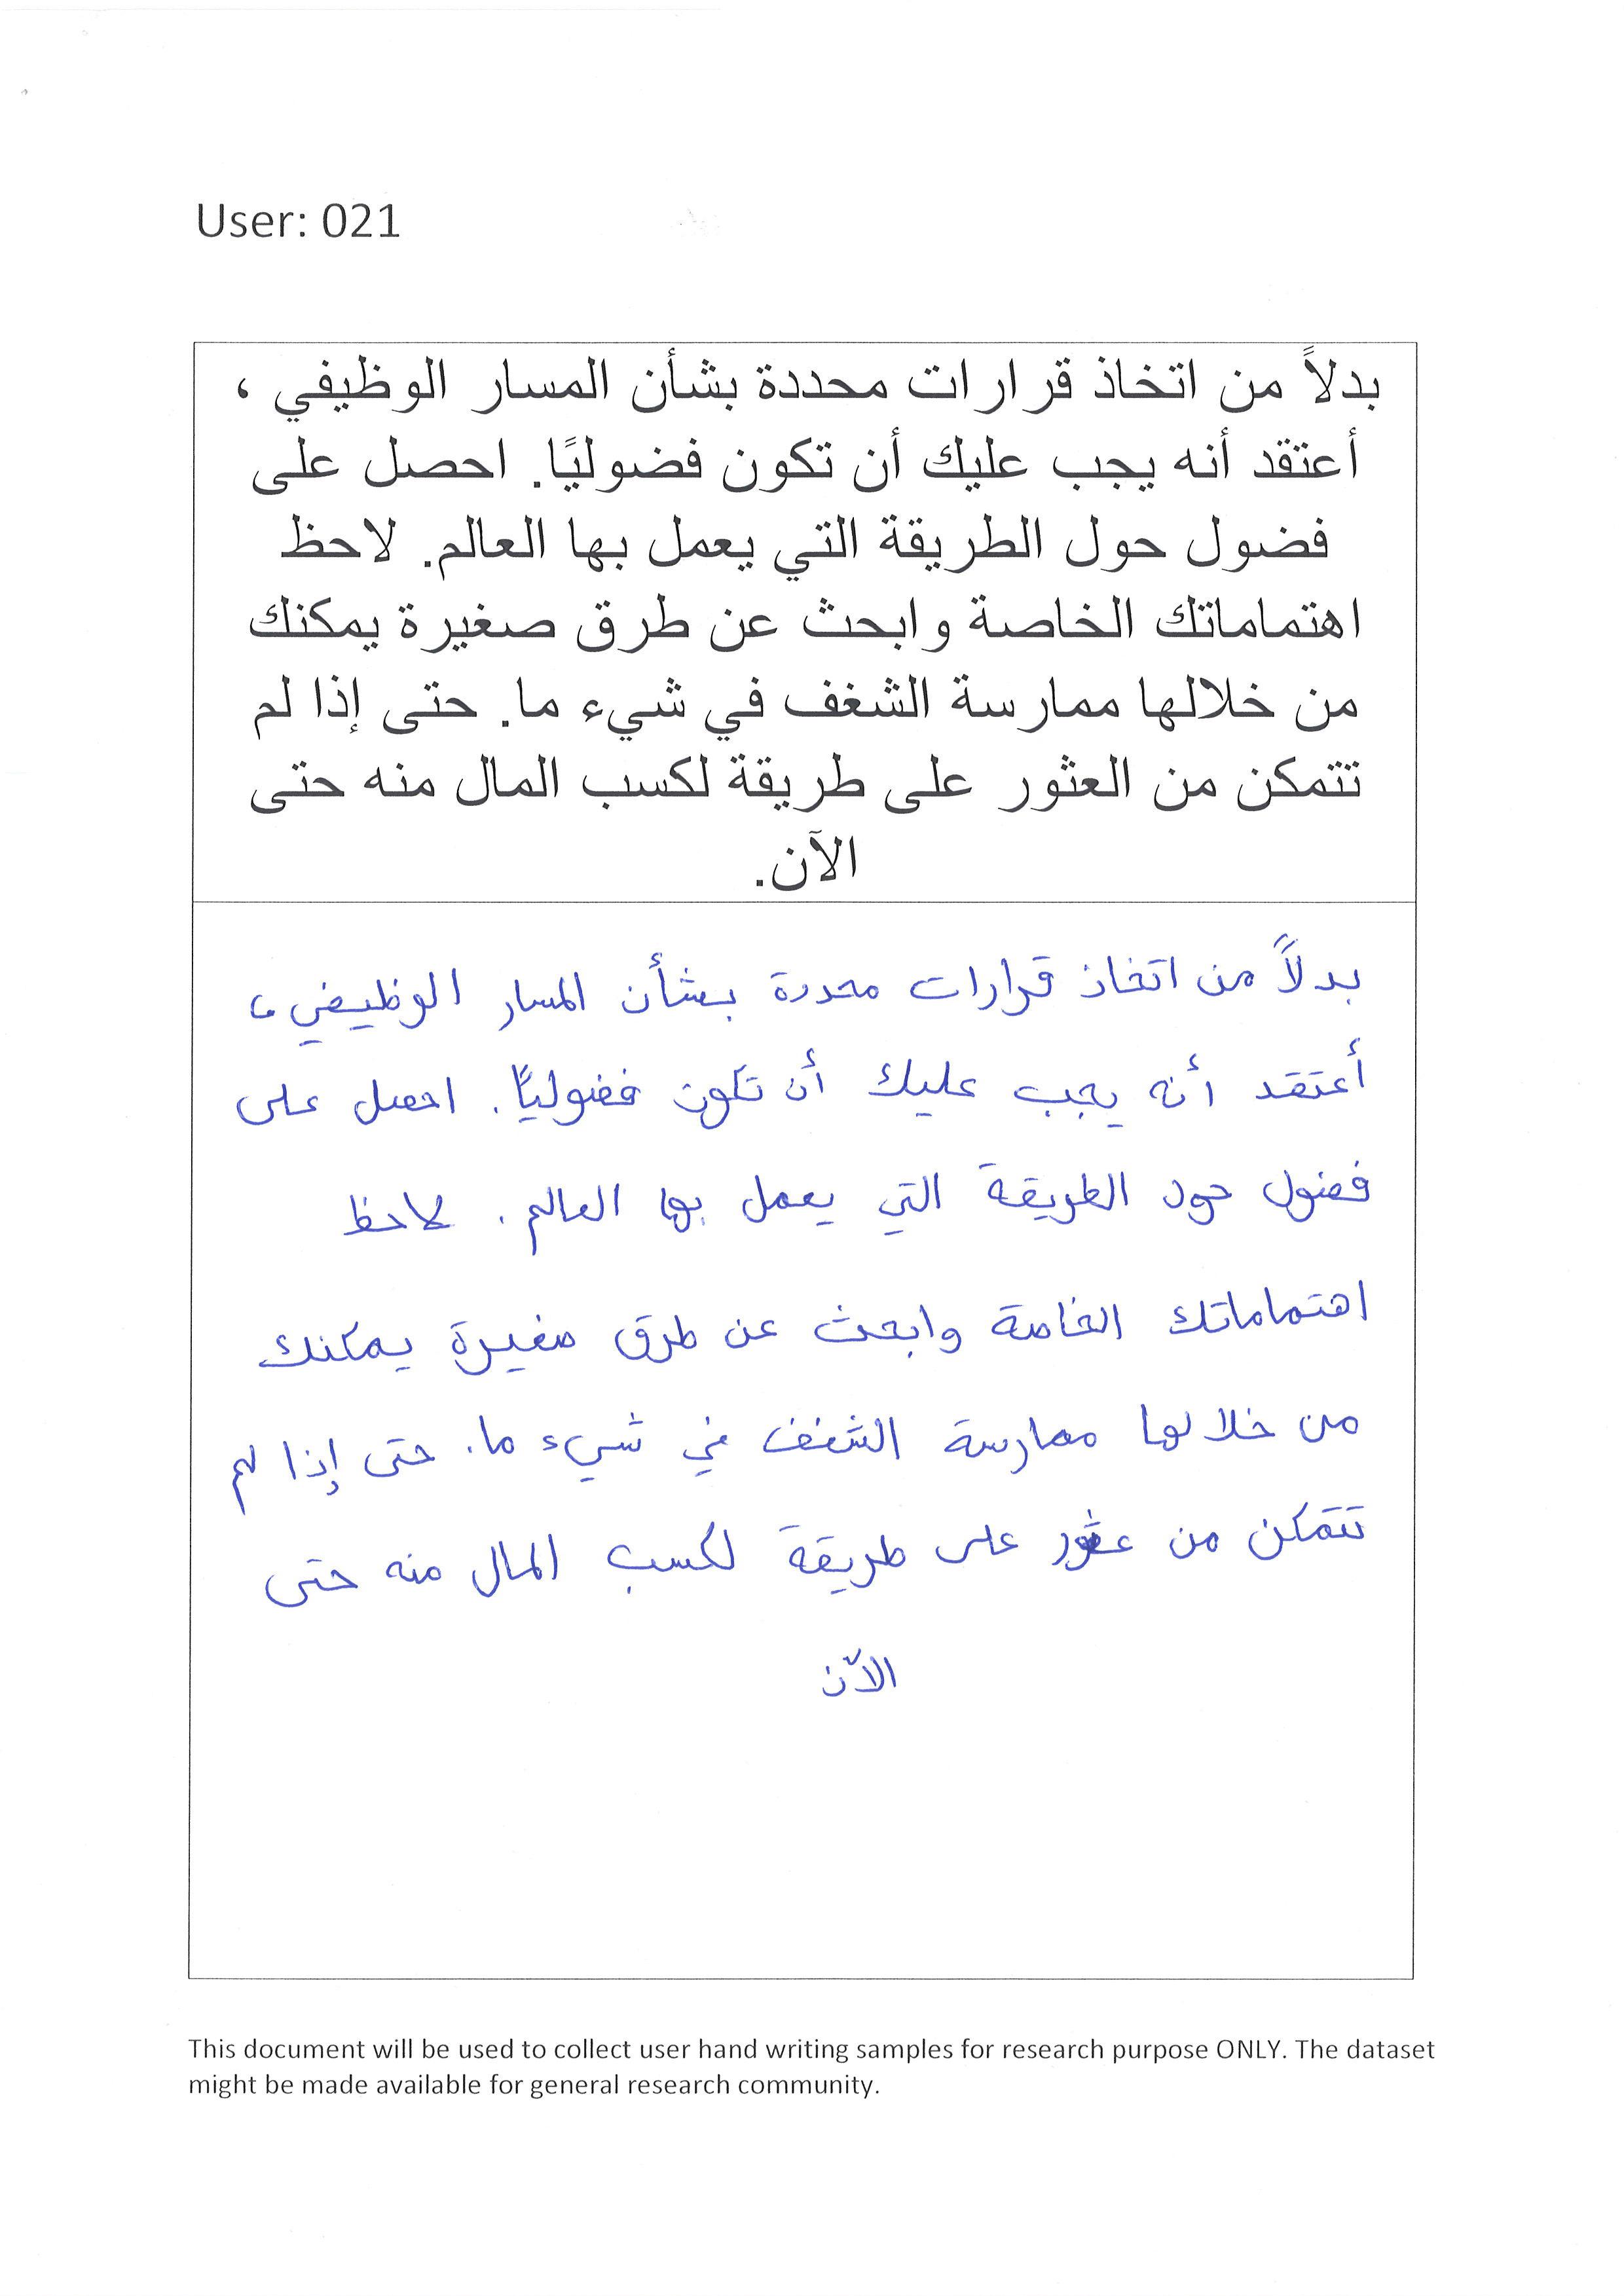 User: 021
بدلاً من اتخاذ قرارات محددة بشأن المسار الوظيفي ،
أعتقد أنه يجب عليك أن تكون فضوليًا. احصل على
فضول حول الطريقة التي يعمل بها العالم. لاحظ
اهتماماتك الخاصة وابحث عن طرق صغيرة يمكنك
من خلالها ممارسة الشغف في شيء ما. حتى إذا لم
تتمكن من العثور على طريقة لكسب المال منه حتى
الآن.
بدلاً من اتخاذ قرارات محددة بشأن المسار الوظيفي ،
أعتقد أنه يجب عليك أن تكون فضوليًا. احصل على
فضول حول الطريقة التي يعمل بها العالم. لاحظ
اهتماماتك الخاصة وابحث عن طرق صغيرة يمكنك
من خلالها ممارسة الشغف في شيء ما. حتى إذا لم
تتمكن من عثور على طريقة لكسب المال منه حتى
الآن
This document will be used to collect user hand writing samples for research purpose ONLY. The dataset
might be made available for general research community.